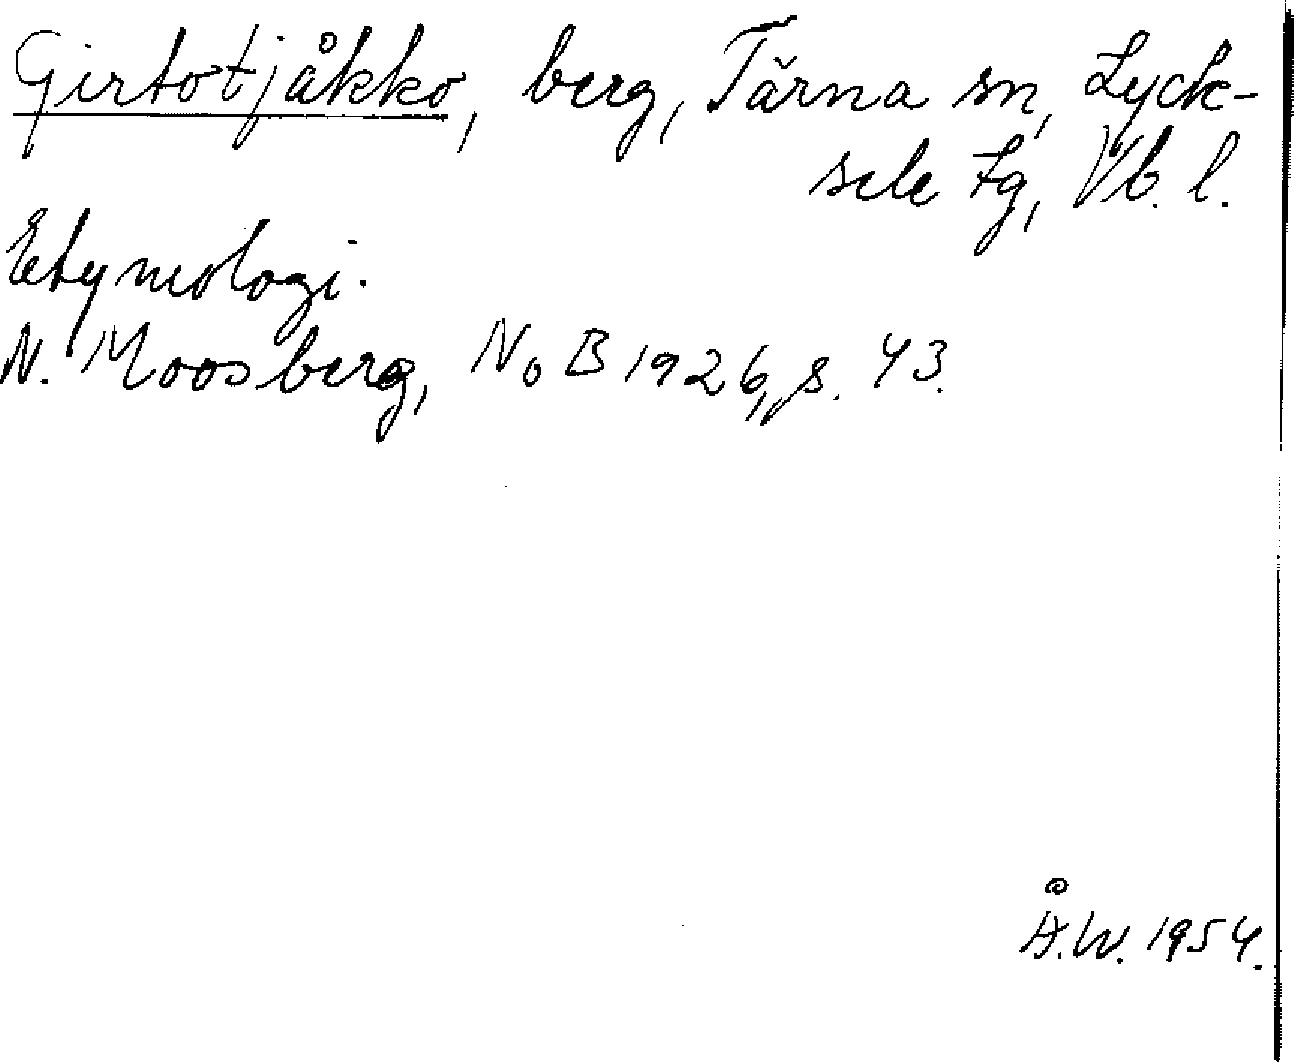 Girtotjåkko, berg, Tärna sn, Lyck-
sele tg, Vb. l.
Etymologi.
N. Moosberg, NoB 1926, s. 43.
Å.W. 1954.